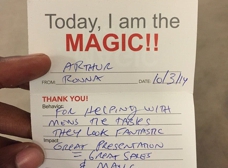 Today, I am the
MAGIC!!
ARTHUR
FROM: RONNA DATE: 10/3/14
THANK YOU!
Behavior:
FOR HELPING WITH
MENS TIE TABLES
THEY LOOK FANTASTIC
Impact:
GREAT PRESENTATION
= GREAT SALES
& MAGIC